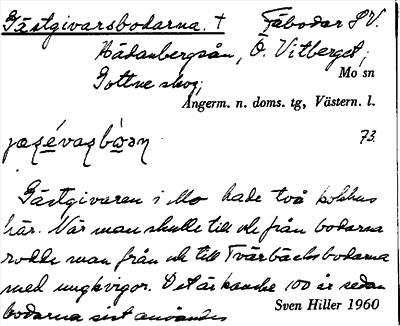 Gästgivarsbodarna. † Fäbodar SV.
Hädanbergsån, Ö. Vitberget,
Mo sn
Gottne skog;
Ångerm. n. doms. tg, Västern. l.
73.
Gästgivaren i Mo hade två kokhus
här. När man skulle till och från bodarna
rodde man från och till Tvärbäcksbodarna
med ungkvigor. Det är kanske 100 år sedan
Sven Hiller 1960
bodarna sist användes